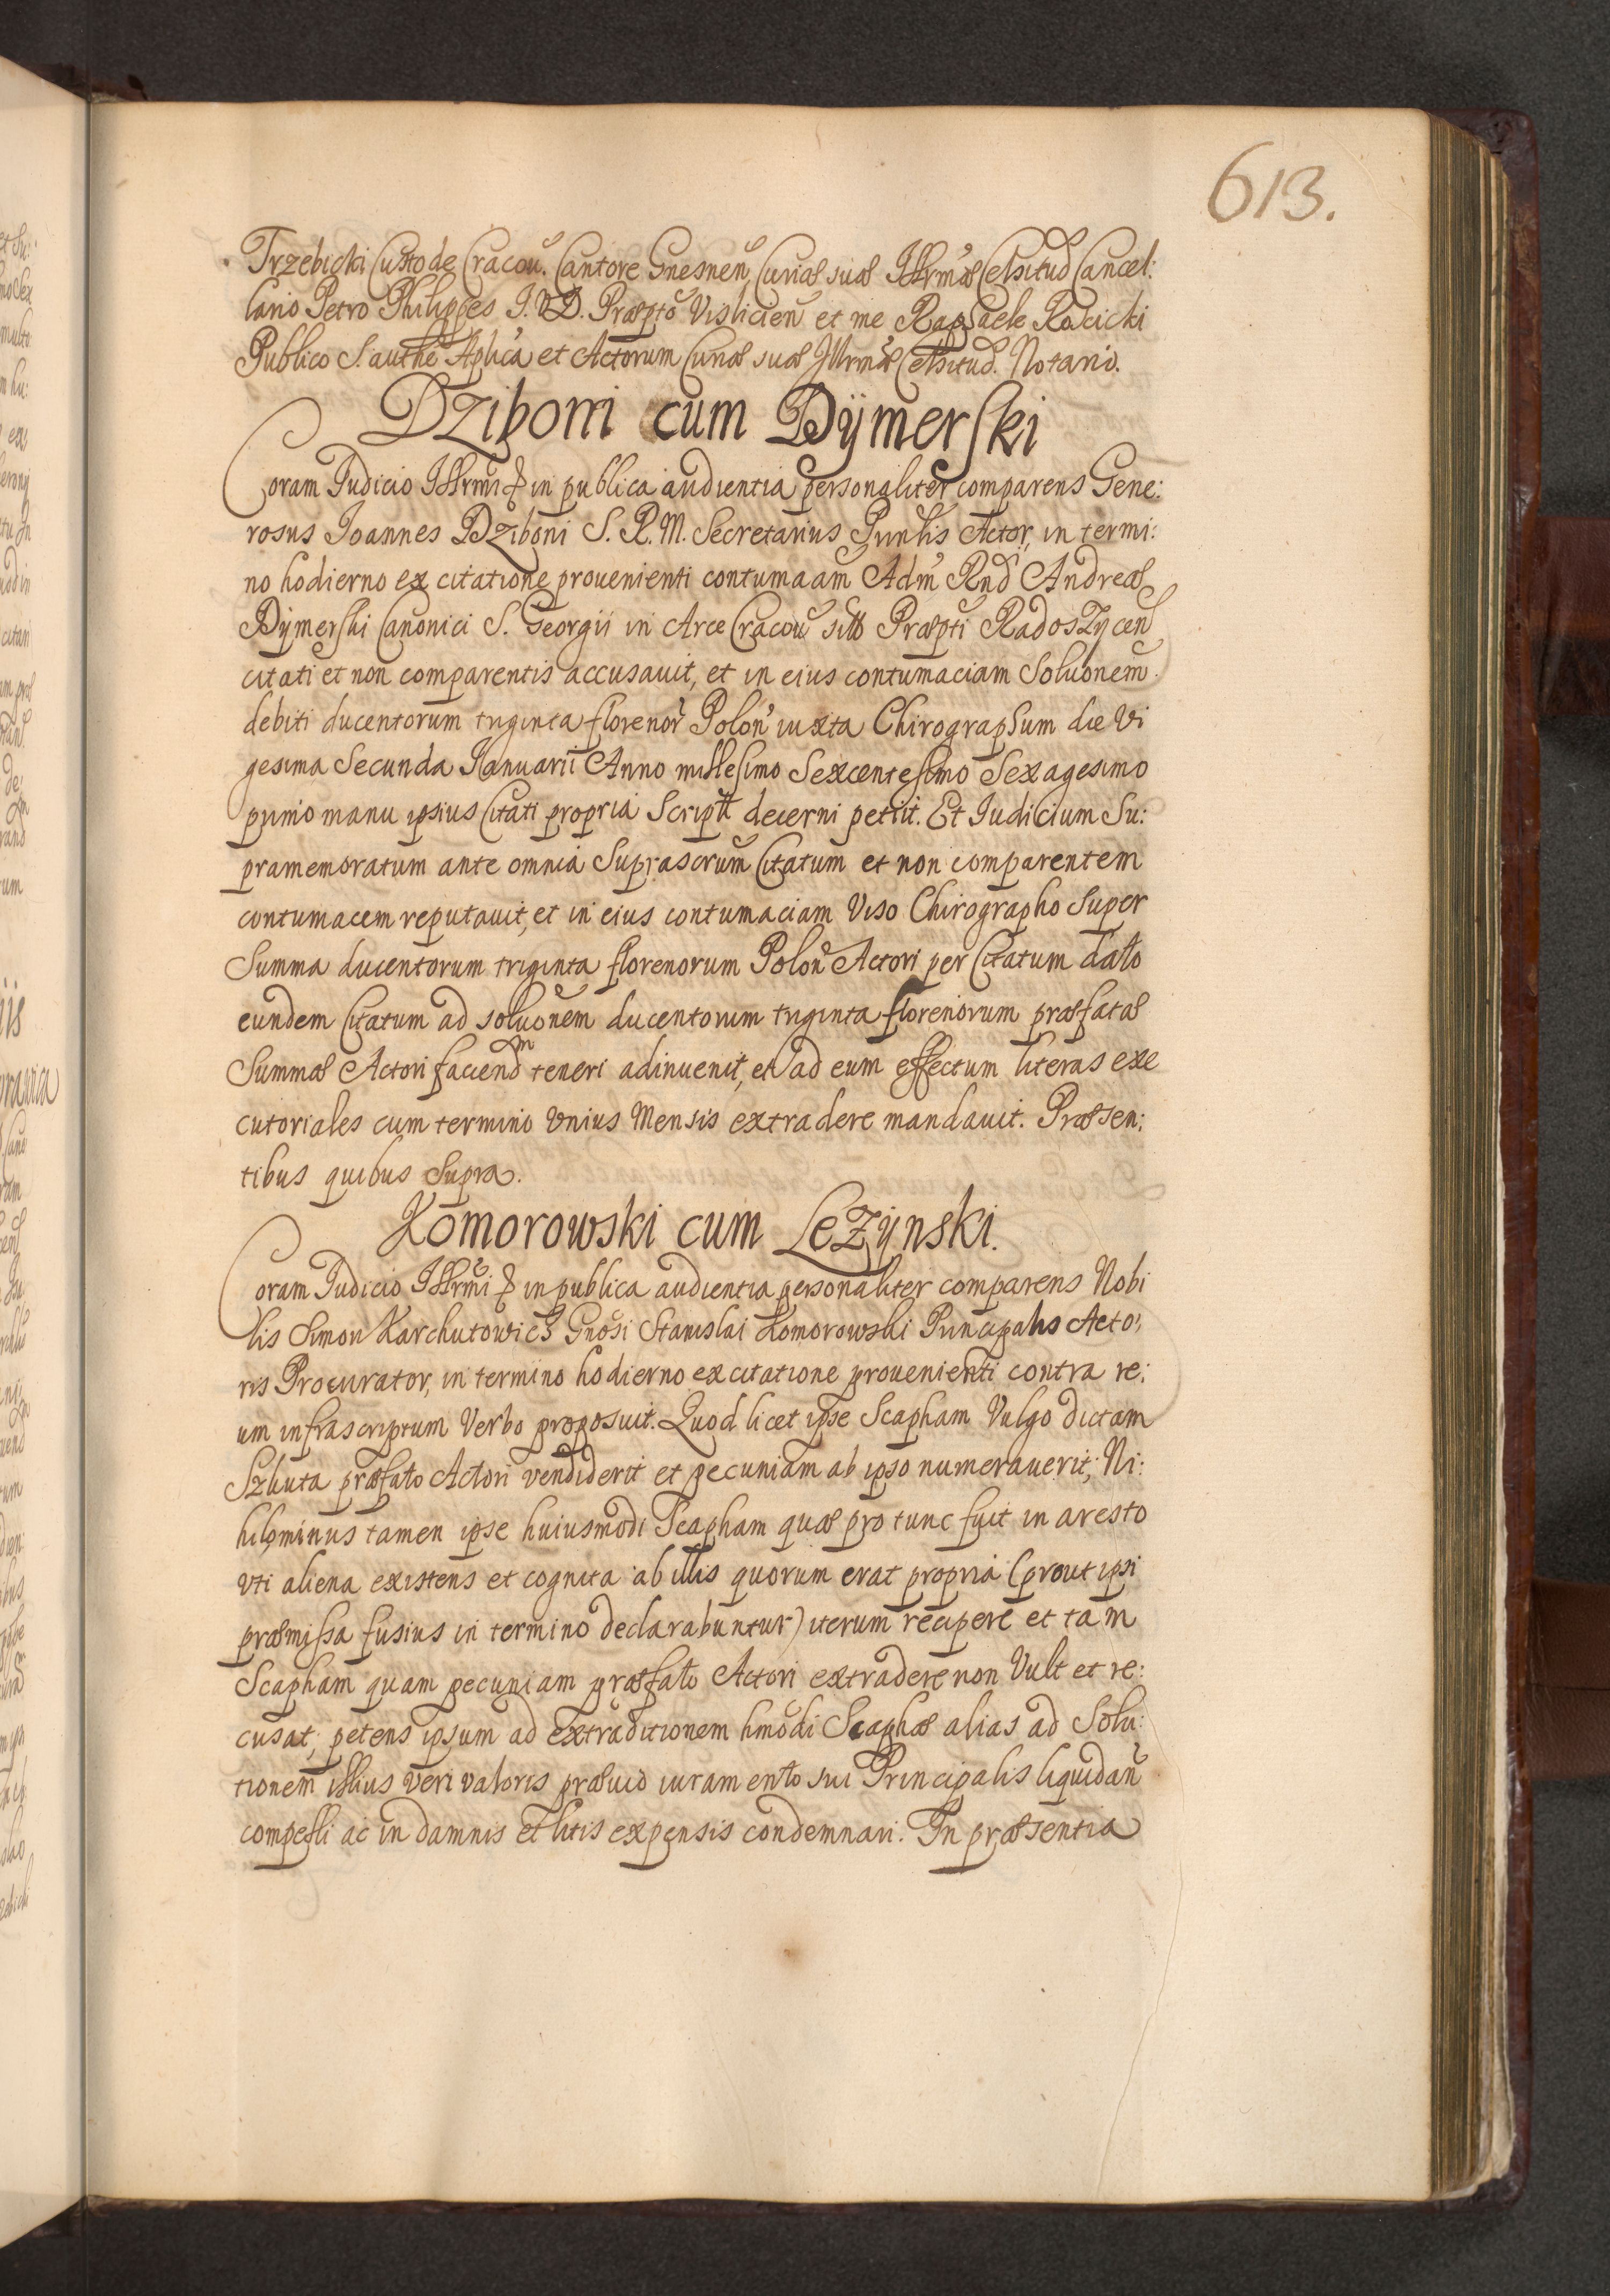 613.
Trzebicki Custode Cracou. Cantore Gnesnen Curiæ suæ Illrmæ Celsitud Cancel:
lario Petro Philippes I. V. D. Præpto Visliciẽn et me Raphaele Roscicki
Publico S. authe Aplica et Actorum Curiæ suæ Illrmæ Celsitud. Notario.
Dziboni cum Dÿmerski
Coram Iudicio Illrmi & in publica audientia personaliter comparens Gene:
rosus Ioannes Dziboni S. R. M. Secretarius Prinlis Actor, in termi:
no hodierno ex citatione prouenienti contumaam Adm Rnd Andreæ
Dÿmerski Canonici S. Georgii in Arce Cracou siti Præpti Radoszycen
citati et non comparentis accusauit, et in eius contumaciam Soluonem
debiti ducentorum triginta florenor Polon iuxta Chirographum die Vi
gesima Secunda Ianuarii Anno millesimo Sexcentesimo Sexagesimo
primo manu ipsius Citati propria Script decerni petiit. Et Iudicium Su:
pramemoratum ante omnia Suprascrum Citatum et non comparentem
contumacem reputauit, et in eius contumaciam Viso Chirographo Super
Summa ducentorum triginta florenorum Polon Actori per Citatum dato
eundem Citatum ad soluonem ducentorum triginta florenorum præfatæ
Summæ Actori faciendm teneri adinuenit, et ad eum effectum literas exe
cutoriales cum termino Vnius Mensis extradere mandauit. Præsen:
tibus quibus Supra.
Komorowski cum Leżÿnski.
Coram Iudicio Illrmi & in publica audientia personaliter comparens Nobi
lis Simon Karchutowicz Gnosi Stanislai Komorowski Principalis Acto:
ris Procurator, in termino hodierno ex citatione prouenienti contra re:
um infrascriptum Verbo proposuit. Quod licet ipse Scapham Vulgo dictam
Szkuta præfato Actori vendiderit et pecuniam ab ipso numerauerit; Ni:
hilominus tamen ipse huiusmodi Scapham quæ pro tunc fuit in aresto
vti aliena existens et cognita ab illis quorum erat propria (prout ipsi
præmissa fusius in termino declarabuntur) iterum recipere et tam
Scapham quam pecuniam præfato Actori extradere non Vult et re:
cusat; petens ipsum ad extraditionem hmodi Scaphæ alias ad Solu:
tionem illius veri valoris præuio iuramento sui Principalis liquidan
compelli ac in damnis et litis expensis condemnari. In præsentia